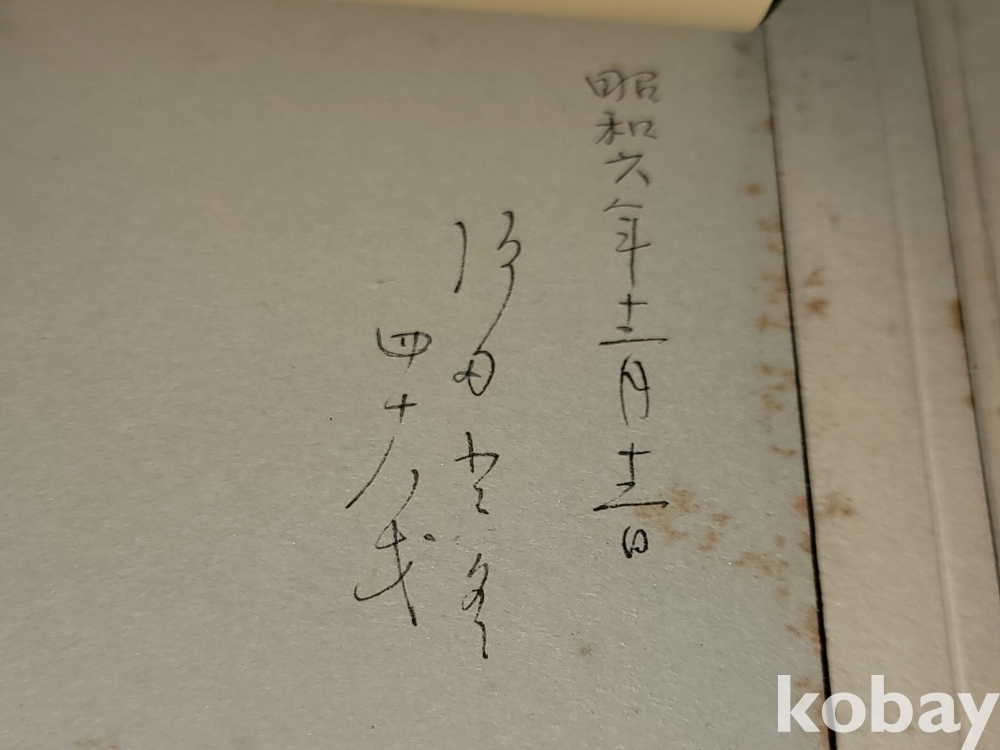 昭和六年十二月十二日
四十八歳
kobay